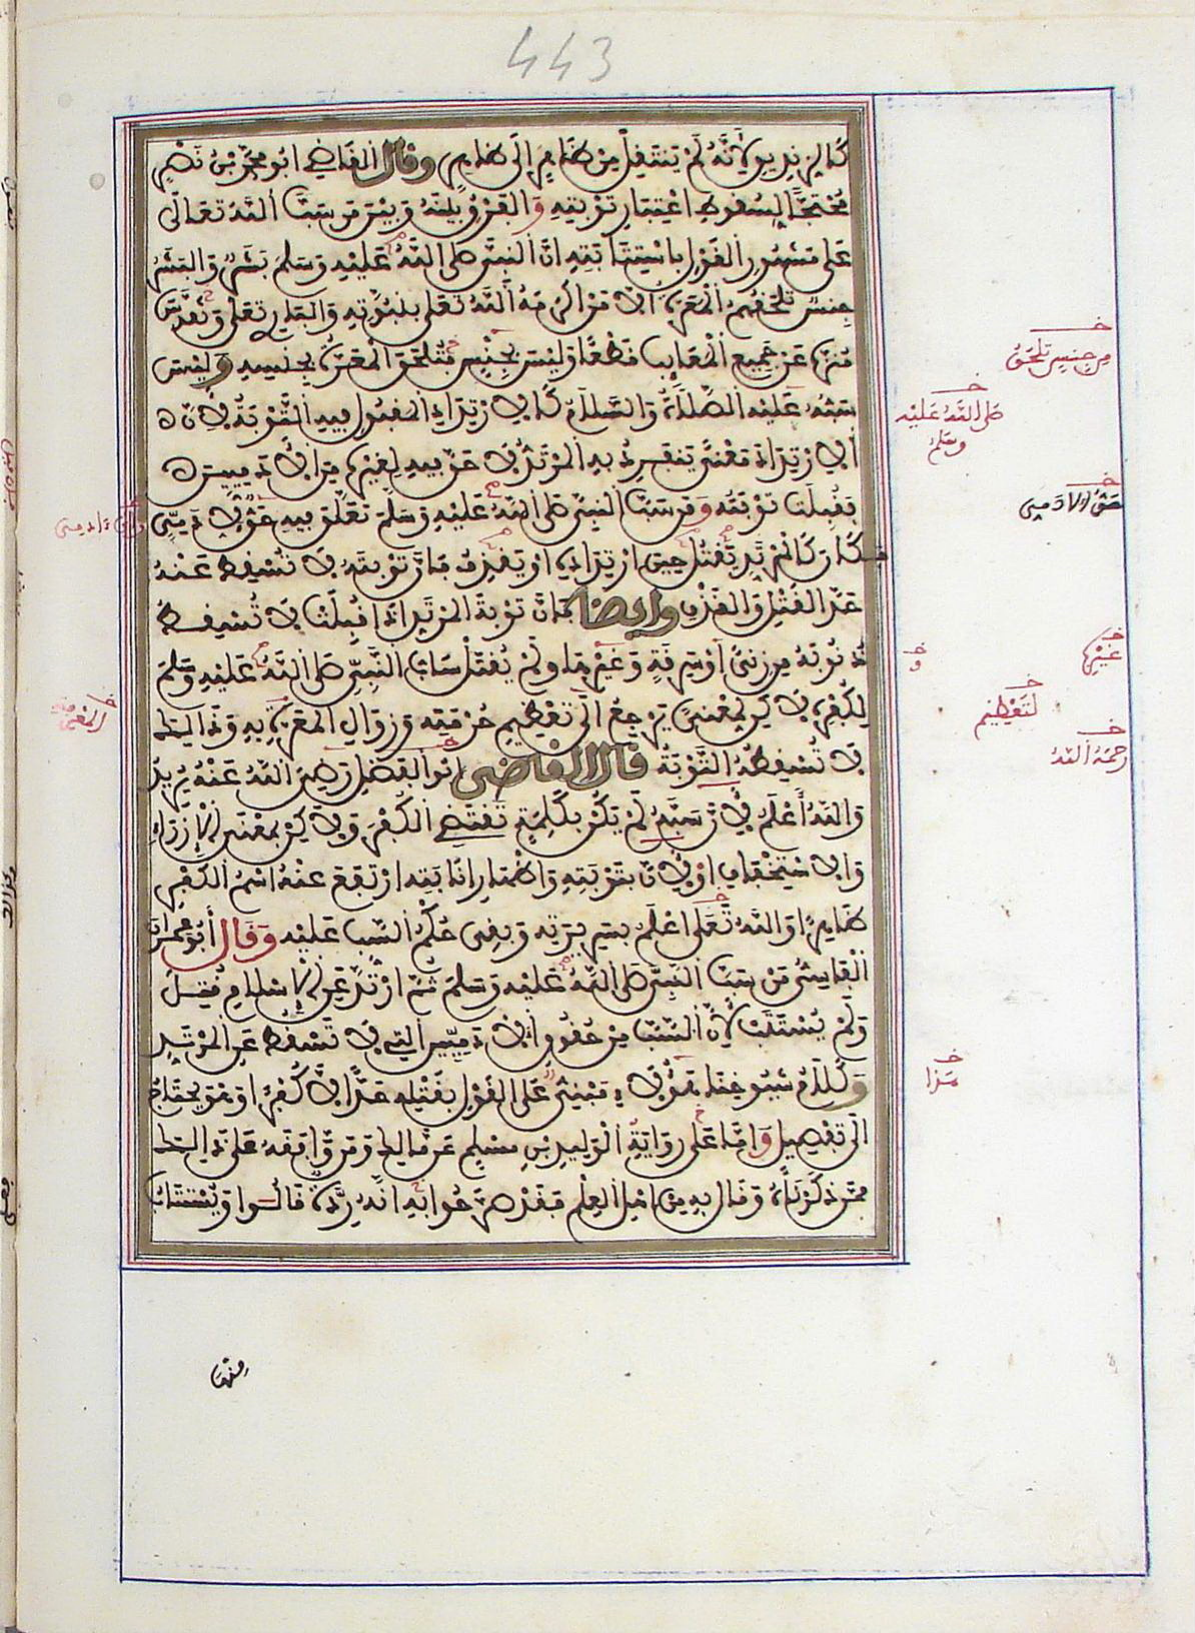 443
كالزنديق لأنه لم ينتقل من ظاهر إلى ظاهر وقال القاضي ابو محمد بن نصر
محتجا لسقوط اعتبار توبته والفرق بينه وبين من سب الله تعالى
على مشهور القول باستتابته ان النبي صلى الله عليه وسلم بشر والبشر
جنس تلحقهم المعرة الا من اكرمه الله تعلى بنبوته والباري تعلى
منزه عن جميع المعايب قطعا وليس من جنس تلحق المعرة بجنسه وليس
سبه عليه الصلاة والسلام كالارتداد المقبول فيه التوبة لان
الارتداد معنى ينفرد به المرتد لا حق فيه لغيره من الادميين
فقبلت توبته ومن سب النبي صلى الله عليه وسلم تعلق فيه حق لادمي
فكان كالمرتد يقتل حين ارتداده او يقذف فان توبته لا تسقط عنه
حد القتل والقذف وايضا فان توبة المرتد اذا قبلت لا تسقط
ذنوبه من زنى او سرقة وغيرها ولم يقتل ساب النبي صلى الله عليه وسلم
لكفره لاكن لمعنى يرجع الى تعظيم حرمته وزوال المعرة به وذالك
لا تسقطه التوبة قال القاضي ابو الفضل رضي الله عنه يريد
والله أعلم لأن سبه لم يكن بكلمة تقتضي الكفر ولاكن بمعنى الازراء
والاستخفاف او لان بتوبته واظهار انابته ارتفع عنه اسم الكفر
ظاهرا والله تعلى اعلم بسريرته وبقي حكم السب عليه وقال أبو عمران
القابسي من سب النبي صلى الله عليه وسلم ثم ارتد عن الاسلام قتل
ولم يستتب لأن السب من حقوق الادميين التي لا تسقط عن المرتد
وكلام شيوخنا هؤلاء مبني على القول بقتله حدا لا كفرا وهو يحتاج
الى تفصيل واما على رواية الوليد بن مسلم عن مالك ومن وافقه على ذالك
ممن ذكرناه وقال به من اهل العلم فقد صرحوا به انه ردة قالوا ويستتاب
منها
من جنس تلحق
صلى الله عليه
وسلم
حق الادمي
غيره
لتعظيم
رحمه الله
هذا